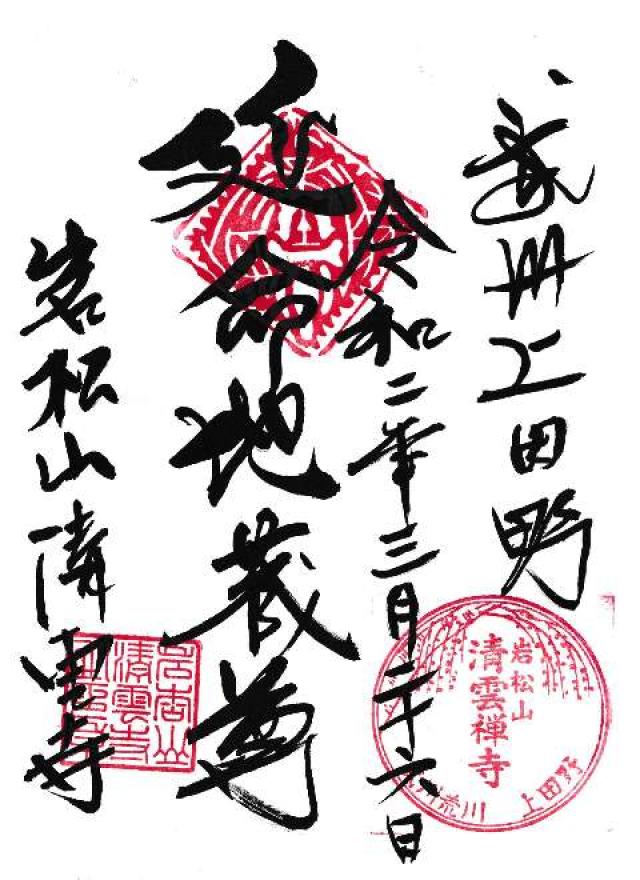 武州上田野
令和二年三月二十六日
延命地蔵尊
岩松山清雲寺
岩松山
清雲禅寺
荒川
上田野